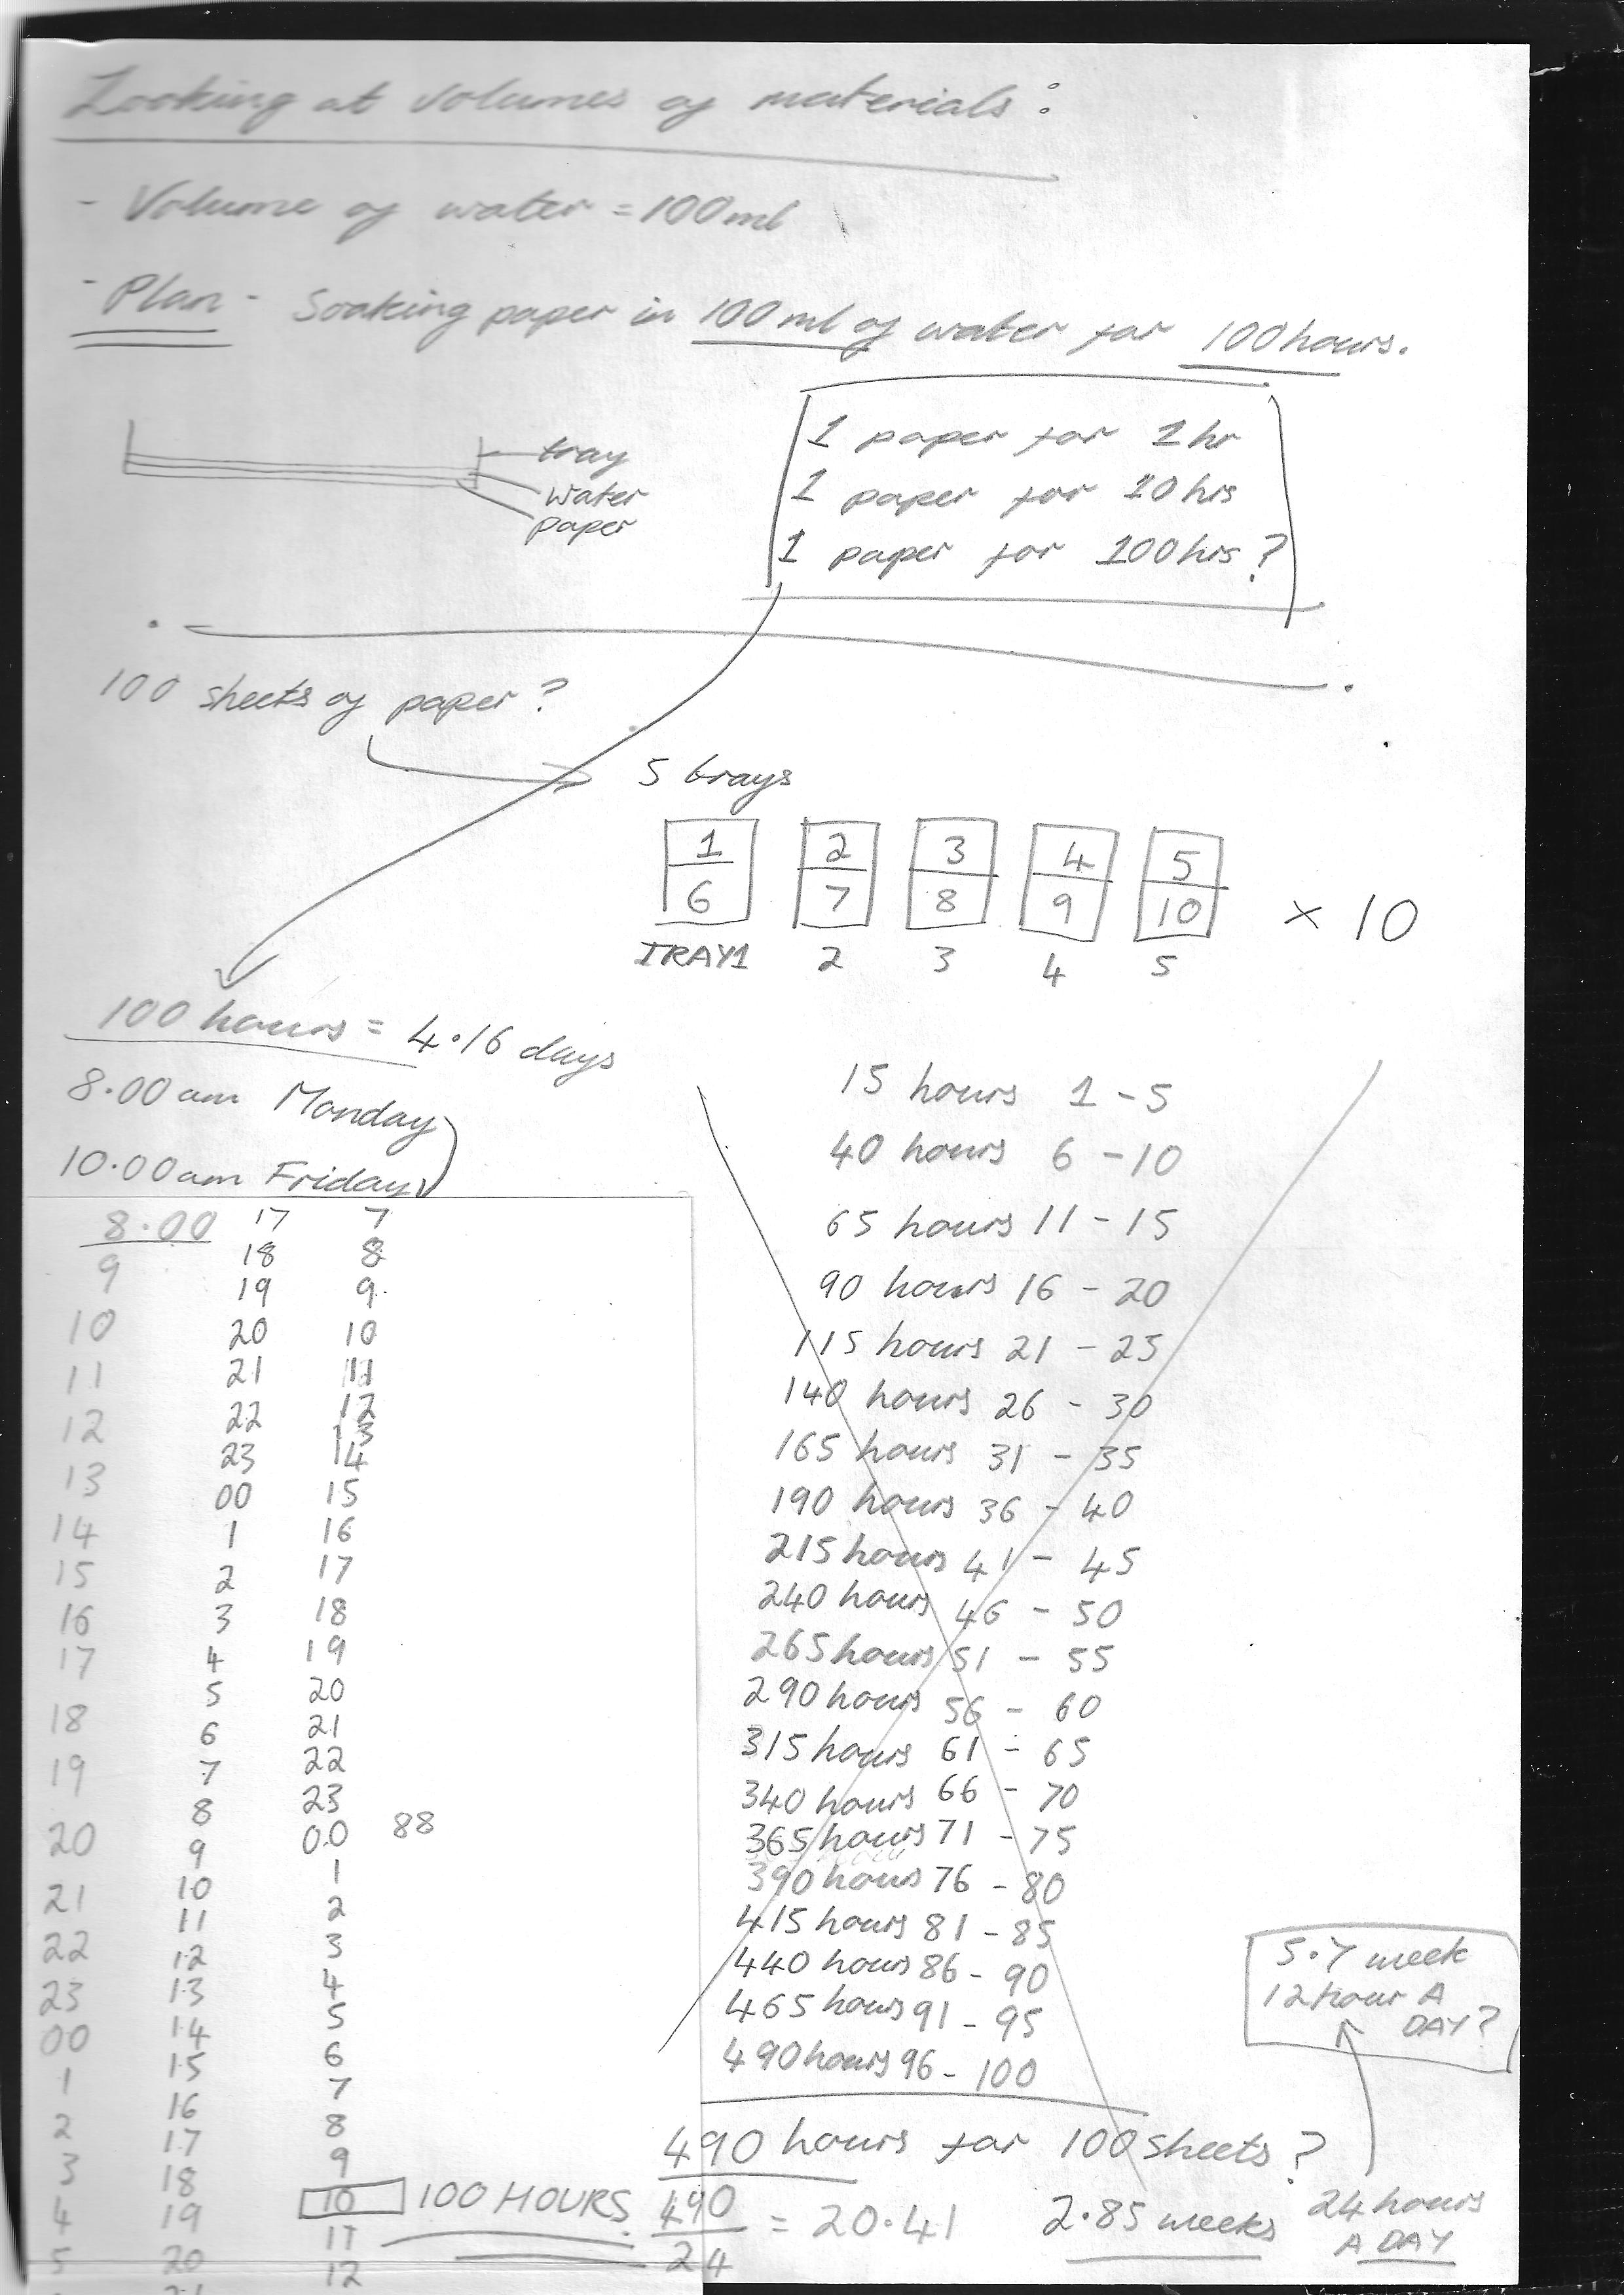 Looking at volumes of materials:
- Volume of water = 100ml
- Plan - Soaking paper in 100ml of water for 100 hours.
tray
water
paper
1 paper for 1hr
1 paper for 10hrs
1 paper for 100hrs?
100 sheets of paper?
5 trays
1 2 3 4 5
6 7 8 9 10 × 10
TRAY1 2 3 4 5
100 hours = 4.16 days
8.00am Monday
10.00am Friday
8.00
9
10
11
12
13
14
15
16
17
18
19
20
21
22
23
00
1
2
3
4
5
17
18
19
20
21
22
23
00
1
2
3
4
5
6
7
8
9
10
11
12
13
14
15
16
17
18
19
20
21
7
8
9
10
11
12
13
14
15
16
17
18
19
20
21
22
23
00 88
1
2
3
4
5
6
7
8
9
10 100 HOURS
11
12
15 hours 1 - 5
40 hours 6 - 10
65 hours 11 - 15
90 hours 16 - 20
115 hours 21 - 25
140 hours 26 - 30
165 hours 31 - 35
190 hours 36 - 40
215 hours 41 - 45
240 hours 46 - 50
265 hours 51 - 55
290 hours 56 - 60
315 hours 61 - 65
340 hours 66 - 70
365 hours 71 - 75
390 hours 76 - 80
415 hours 81 - 85
440 hours 86 - 90
465 hours 91 - 95
490 hours 96 - 100
490 hours for 100 sheets?
490
24
= 20.41 2.85 weeks
24 hours
A DAY
5.7 week
12 hour A
DAY?